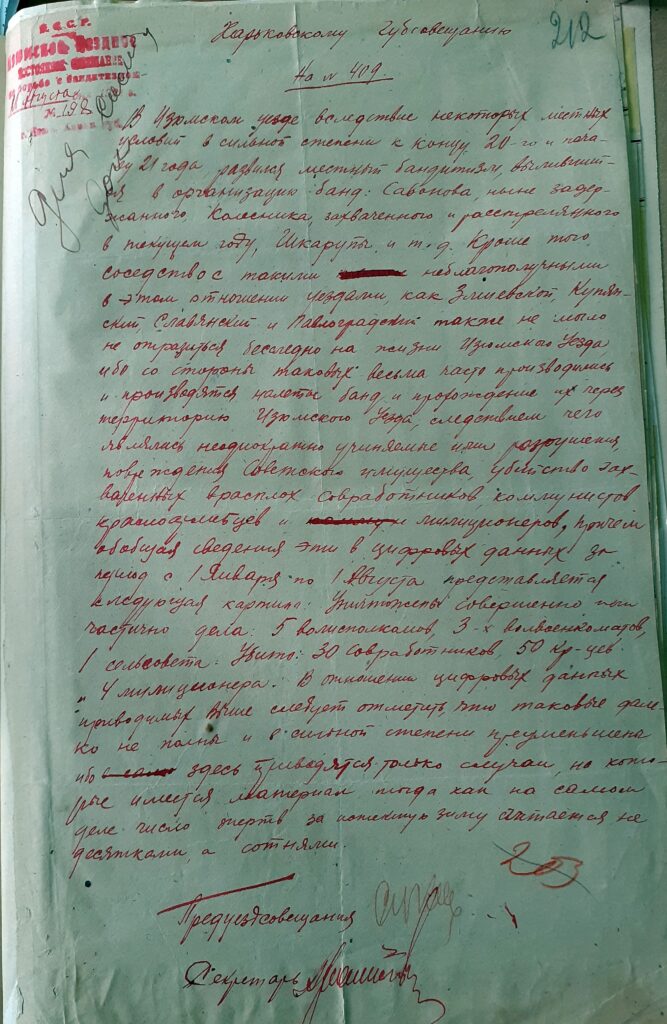 Харьковскому Губсовещанию
212
У.С.С.Р.
ИЗЮМСКОЕ УЕЗДНОЕ
ПОСТОЯННОЕ СОВЕЩАНИЕ
по борьбе с бандитизмом
Августа
№ 198
На № 409
В Изюмском уезде вследствие некоторых местных
условий в сильной степени к концу 20-го и нача-
лу 21 года, развился местный бандитизм, вылившийт-
ся в организацию банд: Савонова, ныне задер-
жанного, Колесника, захваченного и расстрелянного
в текущем году, Шкарупы и т.д. Кроме того
соседство с такими неблагополучными
в этом отношении уездами, как Змиевской, Купян-
ский, Славянский и Павлоградский также не могло
не отразиться бесследно на жизни Изюмского Уезда
ибо со стороны таковых весьма часто производились
и производятся налеты банд и прохождение их через
территорию Изюмского Уезда, следствием чего
являлись неоднократно учиняемые ими разрушения,
повреждения Советского имущества, убийство зах-
ваченных врасплох совработников, коммунистов
красноармейцев и милиционеров, причем
обобщая сведения эти в цифровых данных за
период с 1 Января по 1 Августа представляется
следующая картина: Уничтожены совершенно или
частично дела: 5 волисполкомов, 3-х волвоенкоматов,
1 сельсовета. Убито: 30 Совработников, 50 Кр-цев
и 4 милиционера. В отношении цифровых данных
приводимых выше следует отметить, что таковые дале-
ко не полны и в сильной степени преуменьшена
ибо здесь приводятся только случаи, на кото-
рые имеется материал тогда как на самом
деле число жертв за истекшую зиму считается не
десятками, а сотнями.
203
Предуездсовещания
Секретарь